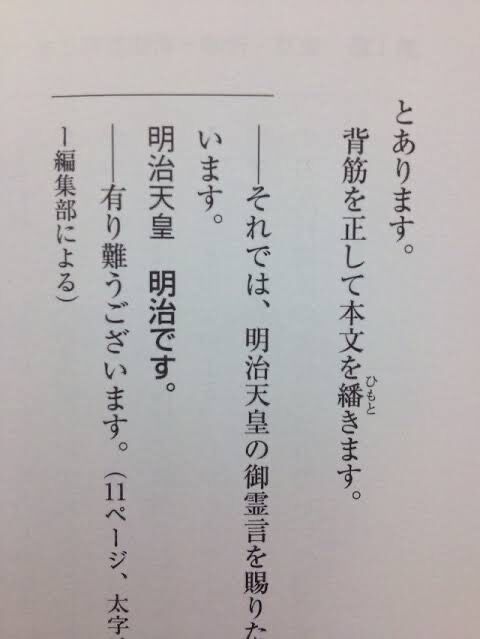 とあります。
背筋を正して本文を繙きます。
ひもと
――それでは、明治天皇の御霊言を賜りた
います。
明治天皇　明治です。
――有り難うございます。（11ページ、太字
ー編集部による）